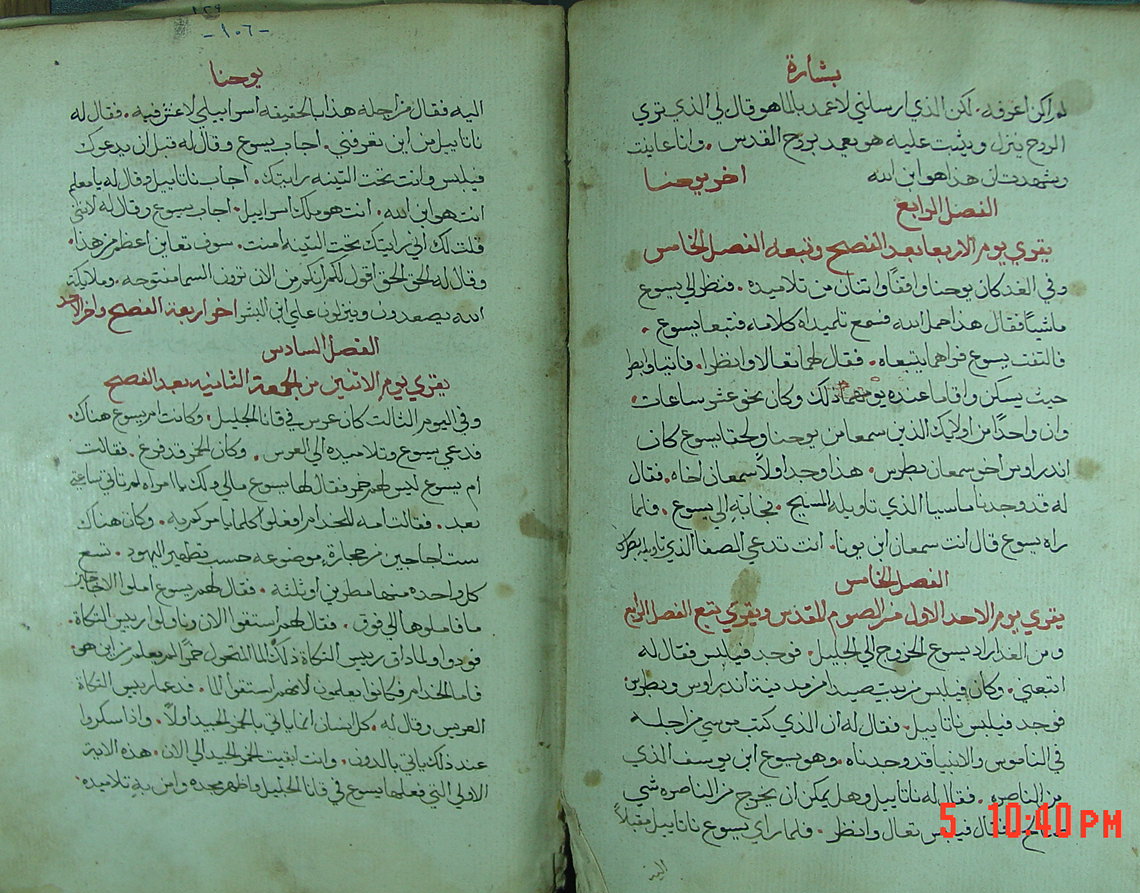 بشارة
لم اكن اعرفه. لكن الذي ارسلني لاعمد بالما هو قال لي الذي تري
الروح ينزل ويثبت عليه هو يعمد بروح القدس. وانا عاينت
وشهدت ان هذا هو ابن الله اخر يوحنا
الفصل الرابع
يقري يوم الاربعا بعد الفصح وتبعه الفصل الخامس
وفي الغد كان يوحنا واقفًا واثنان من تلاميذه. فنظر الي يسوع
ماشيًا فقال هذا حمل الله فسمع تلميذاه كلامه فتبعا يسوع.
فالتفت يسوع فراهما يتبعاه. فقال لهما تعالا وانظرا. فاتيا ونظر
حيث يسكن واقاما عنده يومهما ذلك وكان نحو عشر ساعات.
وان واحدًا من اوليك الذين سمعا من يوحنا ولحقا يسوع كان
اندراوس اخو سمعان بطرس. هذا وجد اولًا سمعان اخاه. فقال
له قد وجدنا ماسيا الذي تاويله المسيح. فجا به الي يسوع. فلما
راه يسوع قال انت سمعان ابن يونا. انت تدعي الصفا الذي تاويله بطرس
الفصل الخامس
يقري يوم الاحد الاول من الصوم المقدس ويقري تبع الفصل الرابع
ومن الغد اراد يسوع الخروج الي الجليل. فوجد فيلبس فقال له
اتبعني. وكان فيلبس من بيت صيدا من مدينة اندراوس وبطرس
فوجد فيلبس ناتاييل. فقال له ان الذي كتب موسي من اجله
في الناموس والانبيا قد وجدناه. وهو يسوع ابن يوسف الذي
من الناصره. فقال له ناتاييل وهل يمكن ان يخرج من الناصره شي
صالح. فقال فيلبس تعال وانظر. فلما راي يسوع ناتاييل مقبلًا
اليه
5 10:40 PM
١٢٩
-١٠٦-
يوحنا
اليه فقال من اجله هذا بالحقيقه اسراييلي لا غش فيه. فقال له
ناتاييل من اين تعرفني. اجاب يسوع وقال له قبل ان يدعوك
فيلبس وانت تحت التينه رايتك. اجاب ناتاييل وقال له يا معلم
انت هو ابن الله. انت هو ملك اسراييل. اجاب يسوع وقال له لانني
قلت لك اني رايتك تحت التينه امنت. سوف تعاين اعظم من هذا.
وقال له الحق الحق اقول لكم انكم من الان ترون السما مفتوحه. وملايكة
الله يصعدون وينزلون علي ابن البشر اخر اربعة الفصح واخر الاحد
الفصل السادس
يقري يوم الاتنين من الجمعة الثانيه بعد الفصح
وفي اليوم الثالث كان عرس في قانا الجليل. وكانت ام يسوع هناك.
فدعي يسوع وتلاميذه الي العرس. وكان الخمر قد فرغ. فقالت
ام يسوع ليس لهم خمر فقال لها يسوع مالي ولك يا امراه لم تاتي ساعتي
بعد. فقالت امه للخدام افعلوا كلما يامركم به. وكان هناك
ست اجاجين من حجارة. موضوعه حسب تطهير اليهود. تسع
كل واحده منها مطرين او ثلثة. فقال لهم يسوع املوا الاجاجين
ما فاملوها الي فوق. فقال لهم استقوا الان وناولوا رييس التكاة.
فودوا ولما ذاق رييس التكاة ذلك الما المتحول خمرًا لم يعلم من اين هو.
فاما الخدام فكانوا يعلمون لانهم استقوا الما. فدعا رييس التكاة
العريس وقال له. كل انسان انما ياتي بالخمر الجيد اولًا. واذا سكروا
عند ذلك ياتي بالدون. وانت ابقيت الخمر الجيد الي الان. هذه الاية
الاولي التي فعلها يسوع في قانا الجليل واظهر مجده وامن به تلاميذه